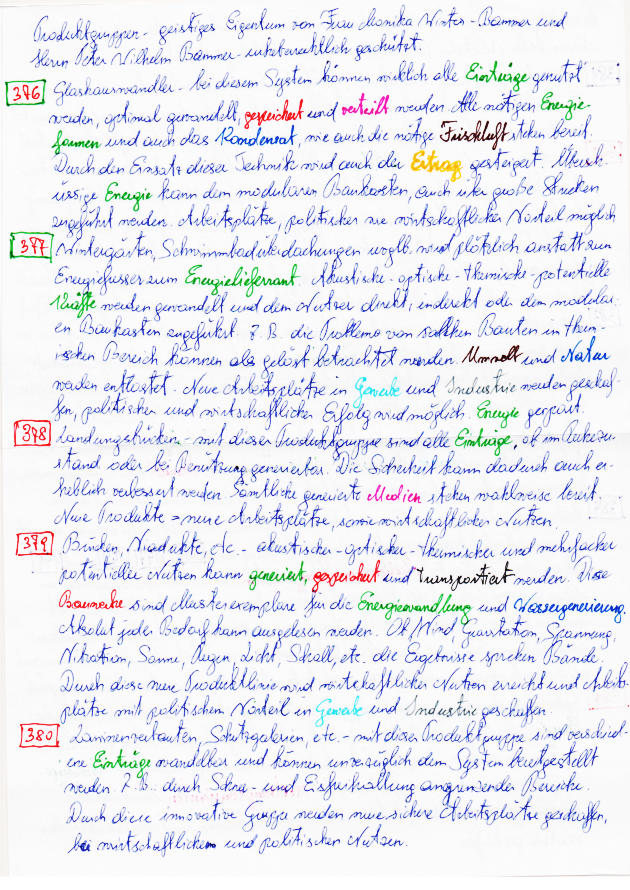 Produktgruppen - geistiges Eigentum von Frau Monika Winter - Bammer und
Herrn Peter Wilhelm Bammer - urheberrechtlich geschützt.
376 Glashauswandler - bei diesem System können wirklich alle Einträge genutzt
werden, optimal gewandelt, gespeichert und verteilt werden. Alle nötigen Energie-
formen und auch das Kondensat, wie auch die nötige Frischluft stehen bereit.
Durch den Einsatz dieser Technik wird auch der Ertrag gesteigert. Übersch-
üssige Energie kann dem modularen Baukasten, auch über große Strecken
zugeführt werden. Arbeitsplätze, politischer wie wirtschaftlicher Vorteil möglich
377 Wintergärten, Schwimmbadüberdachungen wird plötzlich anstatt zum
Energiefresser zum Energielieferrant. Akustische - optische - thermische - potentielle
Kräfte werden gewandelt und dem Nutzer direkt, indirekt oder dem modular-
en Baukasten zugeführt. Z.B. die Probleme von solchen Bauten im therm-
ischen Bereich können als gelöst betrachtet werden. Umwelt und Natur
werden entlastet. Neue Arbeitsplätze in Gewerbe und Industrie werden geschaf-
fen, politischer und wirtschaftlicher Erfolg wird möglich. Energie gespart.
378 Landungsbrücken - mit dieser Produktgruppe sind alle Einträge, ob im Ruhezu-
stand oder bei Benützung generierbar. Die Sicherheit kann dadurch auch er-
heblich verbessert werden. Sämtliche generierte Medien stehen wahlweise bereit.
Neue Produkte = neue Arbeitsplätze, sowie wirtschaftlicher Nutzen.
379 Brücken, Viadukte, etc. - akustischer - optischer - thermischer und mehrfacher
potentieller Nutzen kann generiert, gespeichert und transportiert werden. Diese
Bauwerke sind Musterexemplare für die Energiewandlung und Wassergenerierung.
Absolut jeder Bedarf kann ausgelesen werden. Ob Wind, Gravitation, Spannung,
Vibration, Sonne, Regen, Licht, Schall, etc. die Ergebnisse sprechen Bände.
Durch diese neue Produktlinie wird wirtschaftlicher Nutzen erreicht und Arbeits-
plätze mit politischen Vorteil in Gewerbe und Industrie geschaffen.
380 Lawinenverbauten, Schutzgalerien, etc. - mit dieser Produktgruppe sind verschied-
ene Einträge wandelbar und können unverzüglich dem System bereitgestellt
werden z.B. durch Schnee- und Eisfreihaltung angrenzender Bereiche.
Durch diese innovative Gruppe werden neue sichere Arbeitsplätze geschaffen,
bei wirtschaftlichem und politischen Nutzen.